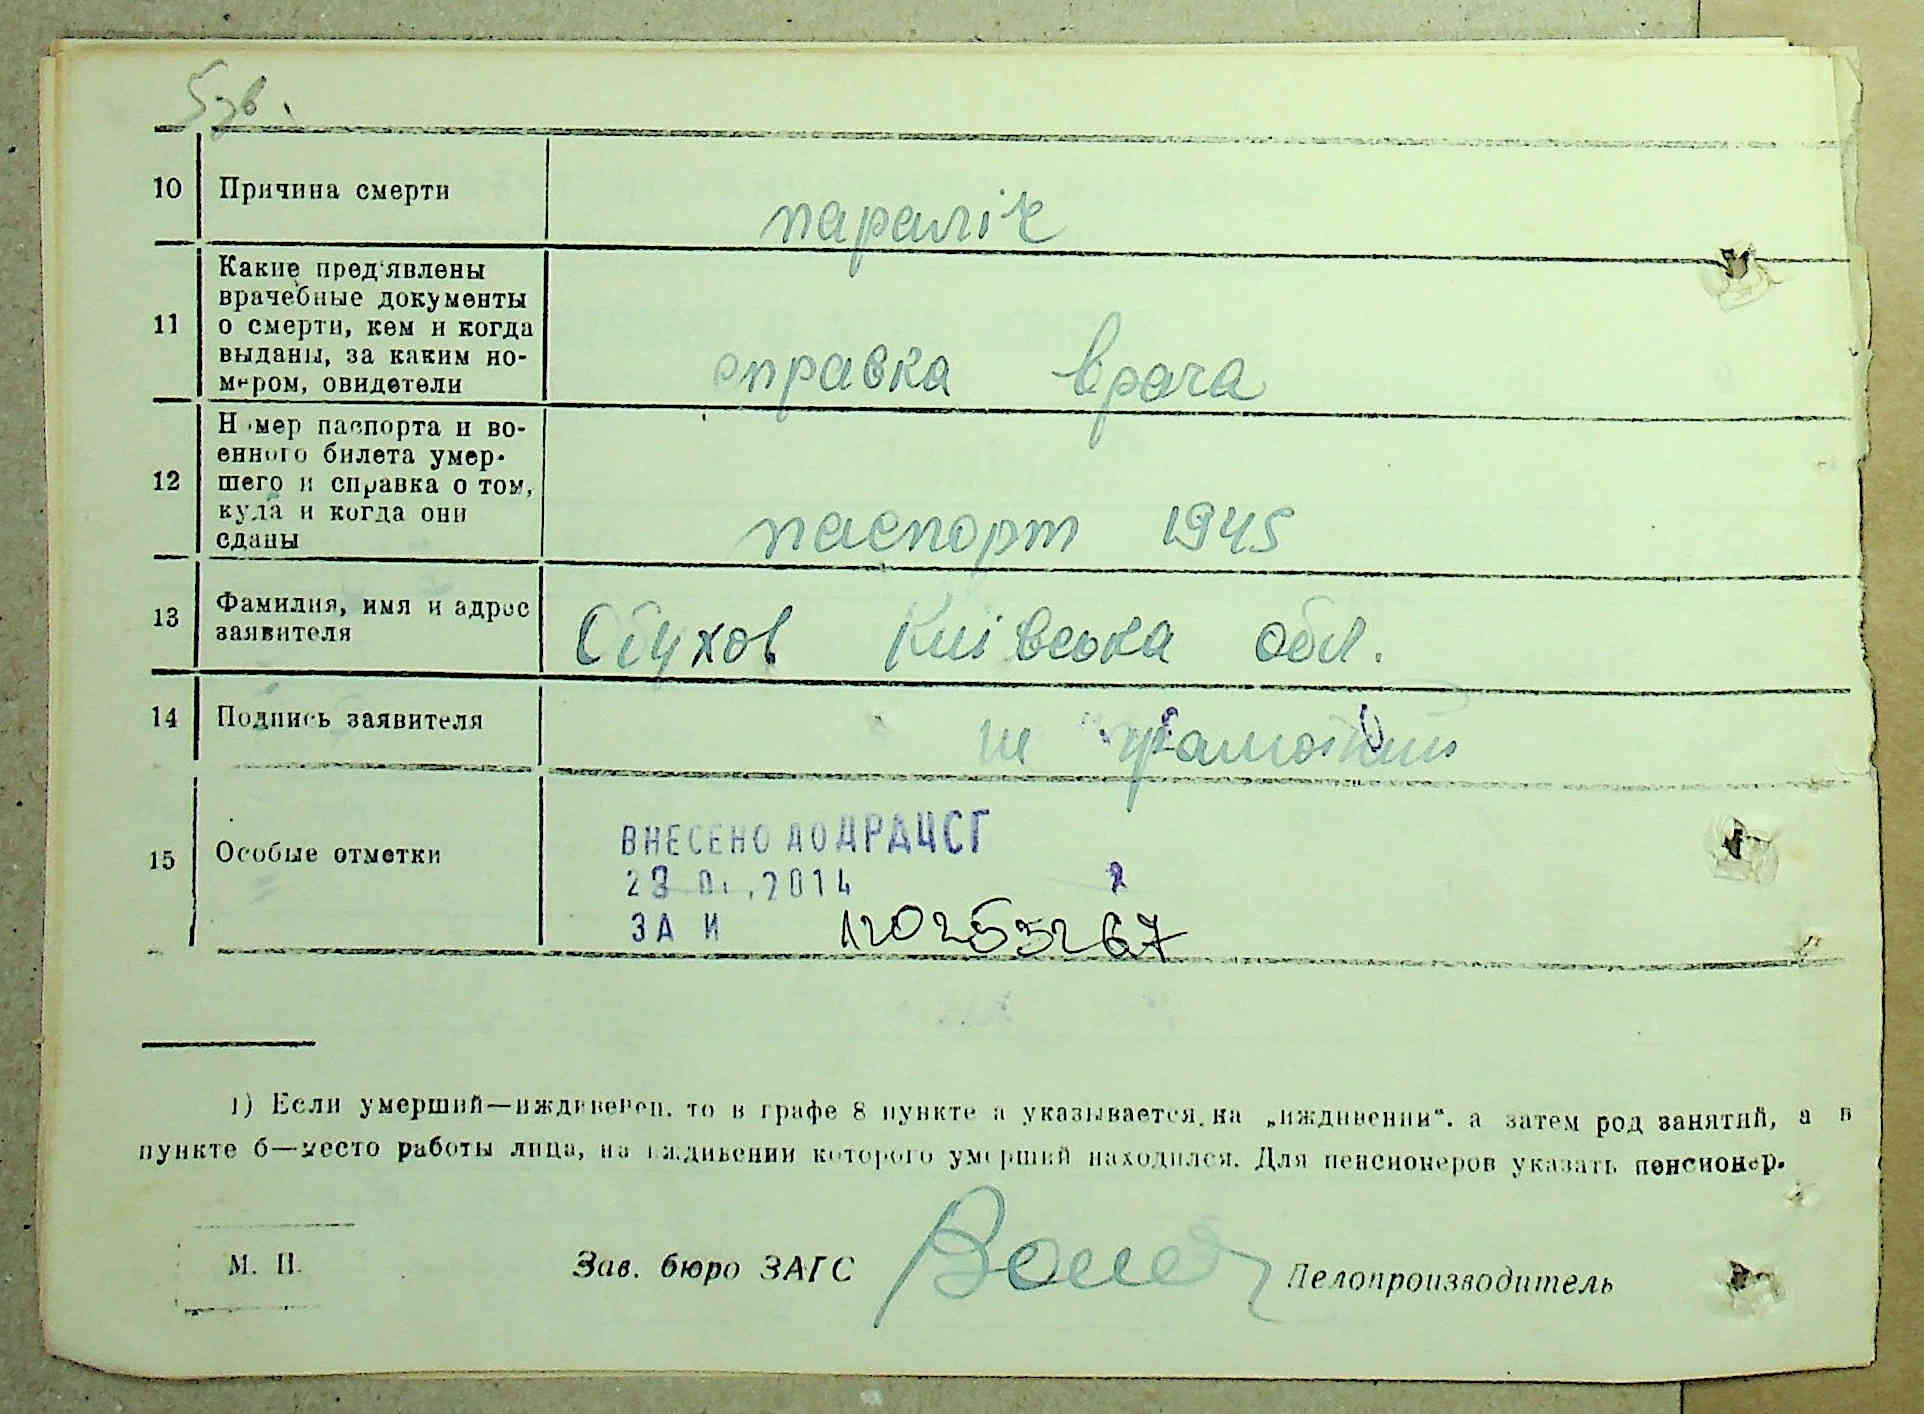 5зв.
10 Причина смерти параліч
11 Какие пред'явлены
врачебные документы
о смерти, кем и когда
выданы, за каким но-
мером, свидетели
справка врача
12 Номер паспорта и во-
енного билета умер-
шего и справка о том,
куда и когда они
сданы
паспорт 1945
13 Фамилия, имя и адрес
заявителя
Обухов Київська обл.
14 Подпись заявителя не грамотний
15 Особые отметки
ВНЕСЕНО ДО ДРАЦСГ
2014
ЗА И 120253267
1) Если умерший—иждивенец, то в графе 8 пункте а указывается, на „иждивении“, а затем род занятий, а в
пункте б—место работы лица, на иждивении которого умерший находился. Для пенсионеров указать пенсионер.
М. П. Зав. бюро ЗАГС Делопроизводитель